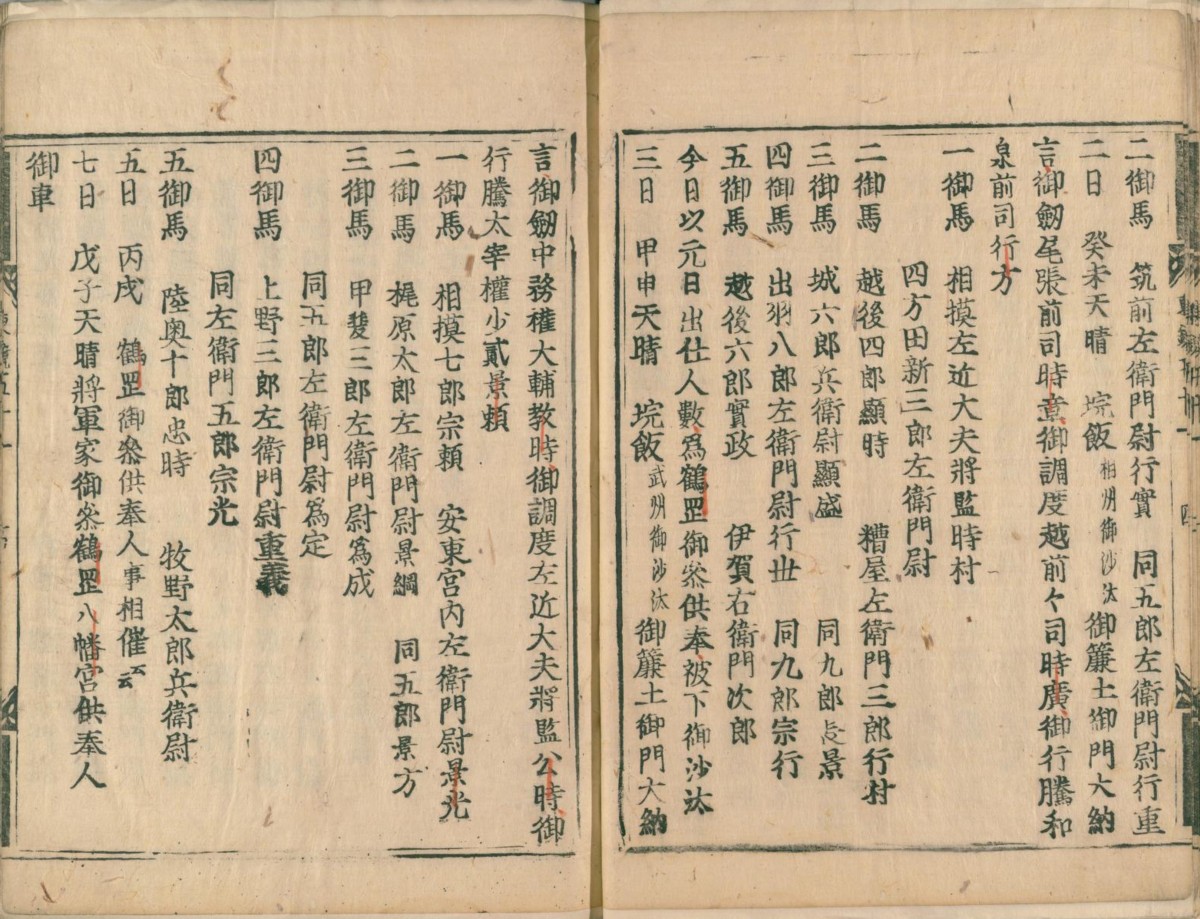 二御馬　筑前左衛門尉行實　同五郎左衛門尉行重
二日　癸未天晴　垸飯相州御沙汰御簾土御門大納
言御劔尾張前司時章御調度越前々司時廣御行騰和
泉前司行方
一御馬　相摸左近大夫將監時村
四方田新三郎左衛門尉
二御馬　越後四郎顯時　糟屋左衛門三郎行村
三御馬　城六郎兵衛尉顯盛　同九郎長景
四御馬　出羽八郎左衛門尉行世　同九郎宗行
五御馬　越後六郎實政　伊賀右衛門次郎
今日以元日出仕人數爲鶴罡御參供奉被下御沙汰
三日　甲申天晴　垸飯武州御沙汰御簾土御門大納
言御劔中務權大輔教時御調度左近大夫將監公時御
行騰太宰權少貳景頼
一御馬　相摸七郎宗頼　安東宮内左衛門尉景光
二御馬　梶原太郎左衛門尉景綱　同五郎景方
三御馬　甲斐三郎左衛門尉爲成
同五郎左衛門尉爲定
四御馬　上野三郎左衛門尉重義
同左衛門五郎宗光
五御馬　陸奥十郎忠時　牧野太郎兵衛尉
五日　丙戌　鶴罡御參供奉人事相催云云
七日　戊子天晴將軍家御參鶴罡八幡宮供奉人
御車